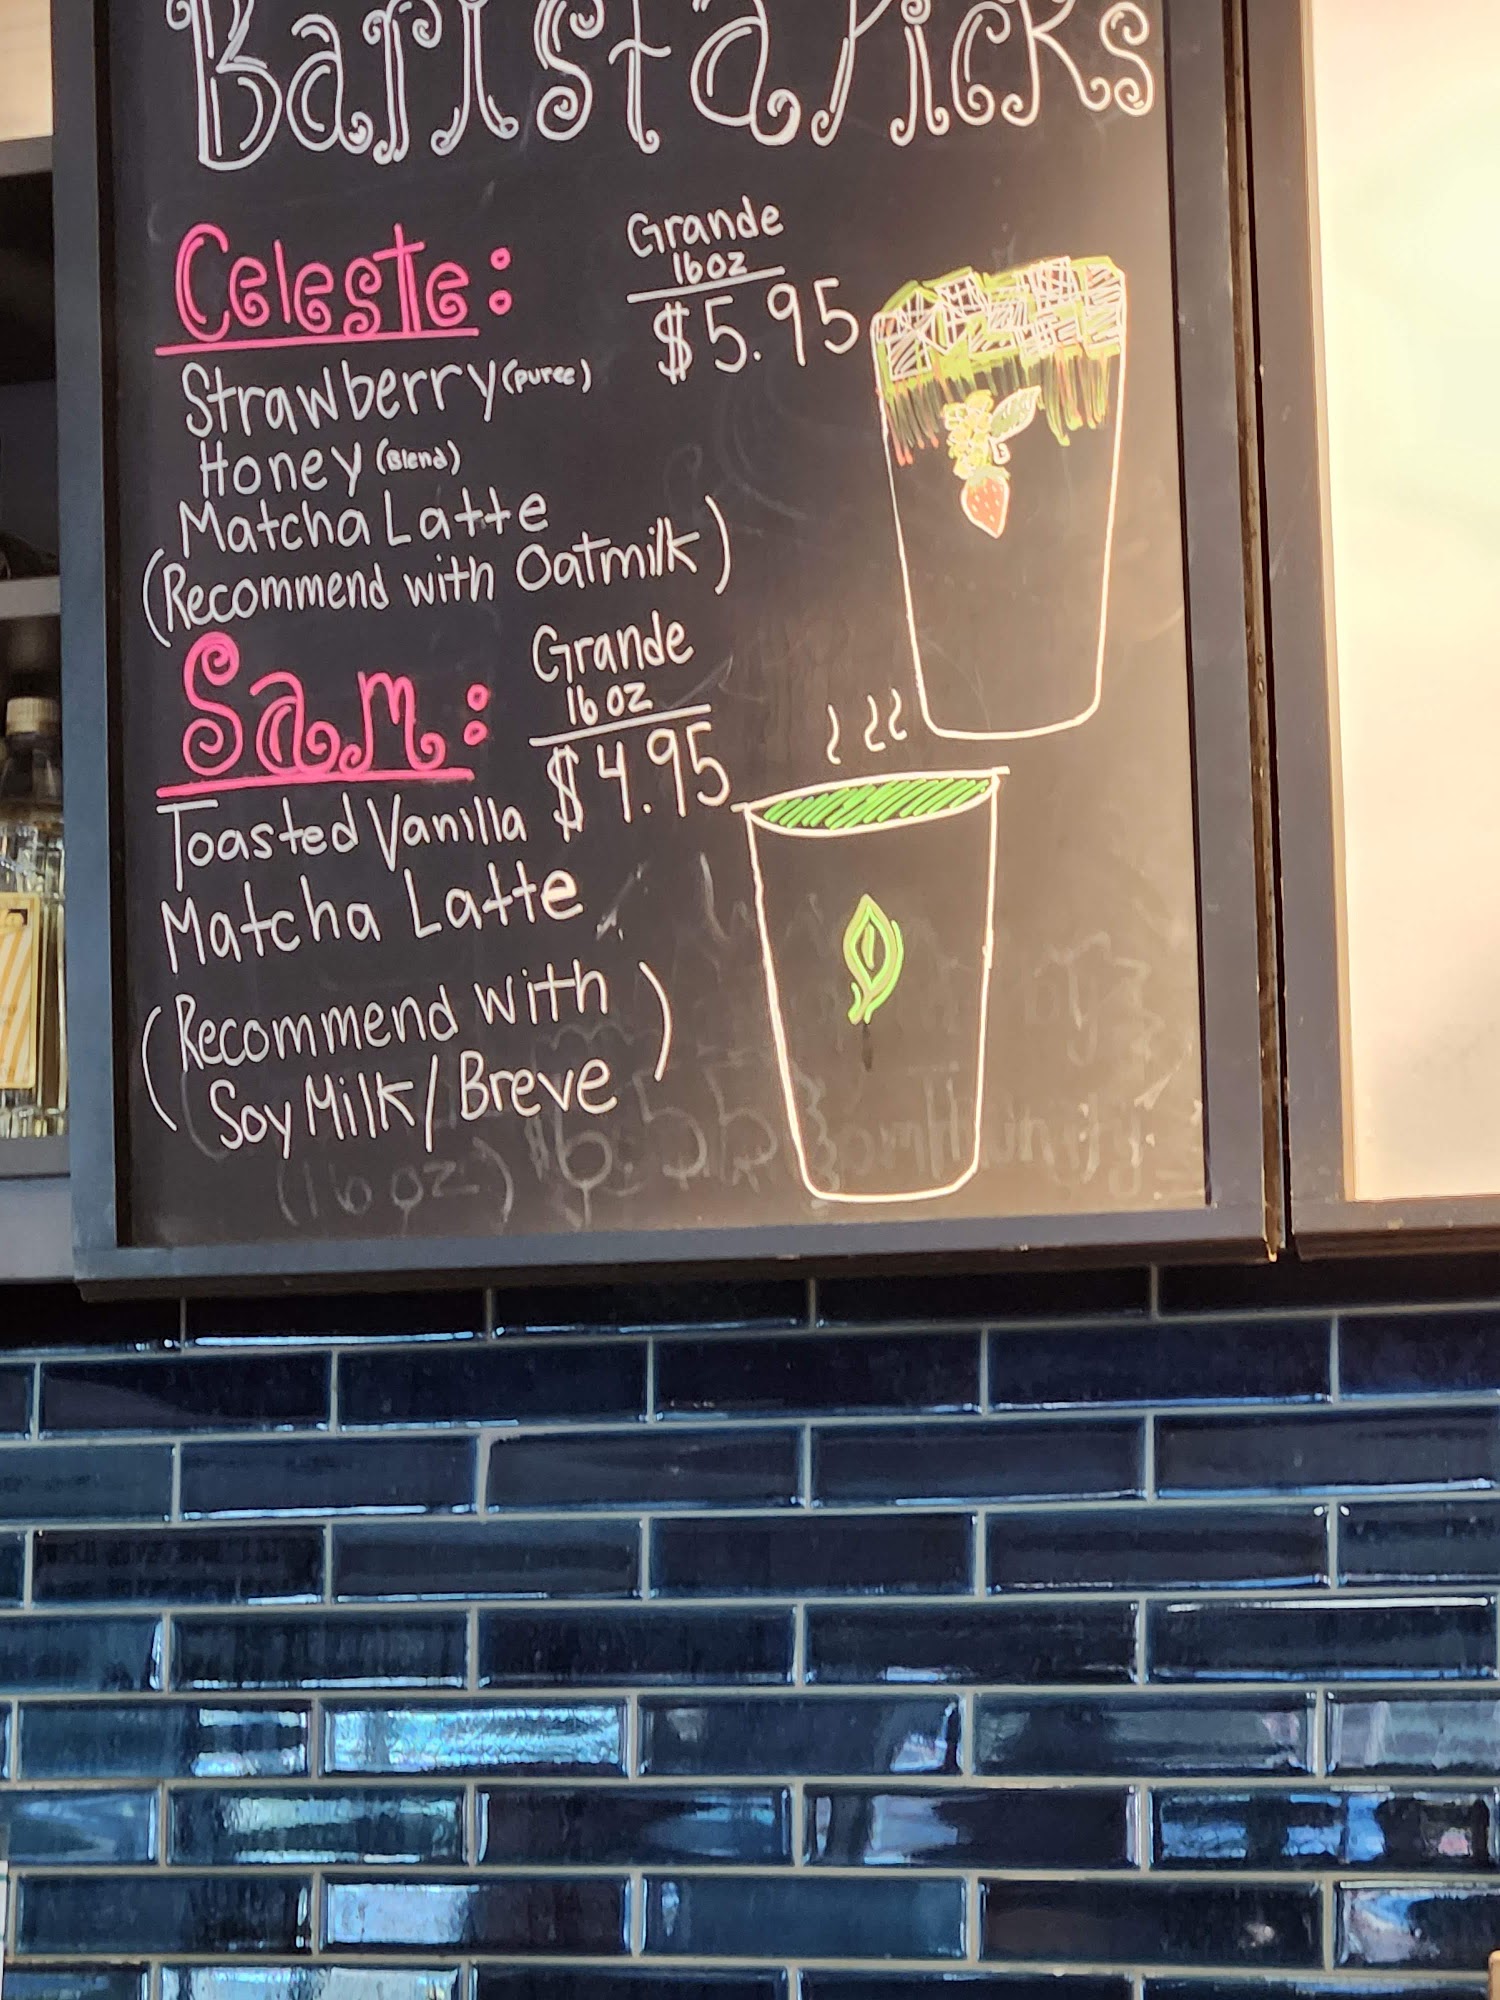 Barista Picks
Celeste:
Grande
16oz
$5.95
Strawberry (puree)
Honey (Blend)
Matcha Latte
(Recommend with Oatmilk)
Sam:
Grande
16oz
$4.95
Toasted Vanilla
Matcha Latte
(Recommend with
Soy Milk/Breve)
(16oz) $6.55
Community